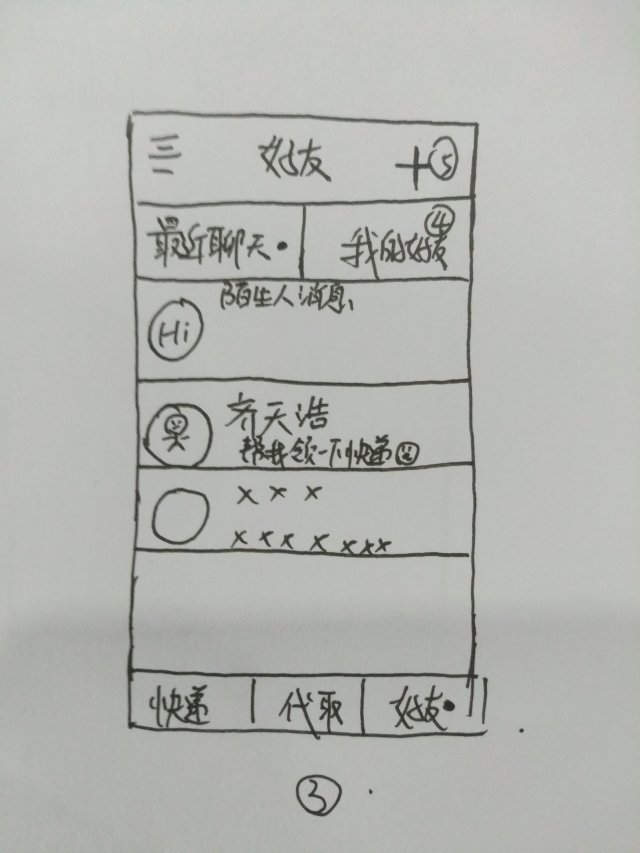 三 好友 + ⑤
④
最近聊天· 我的好友
陌生人消息、
Hi
齐天浩
帮我领一下快递
× × ×
× × × × × × ×
快递 代取 好友·
③